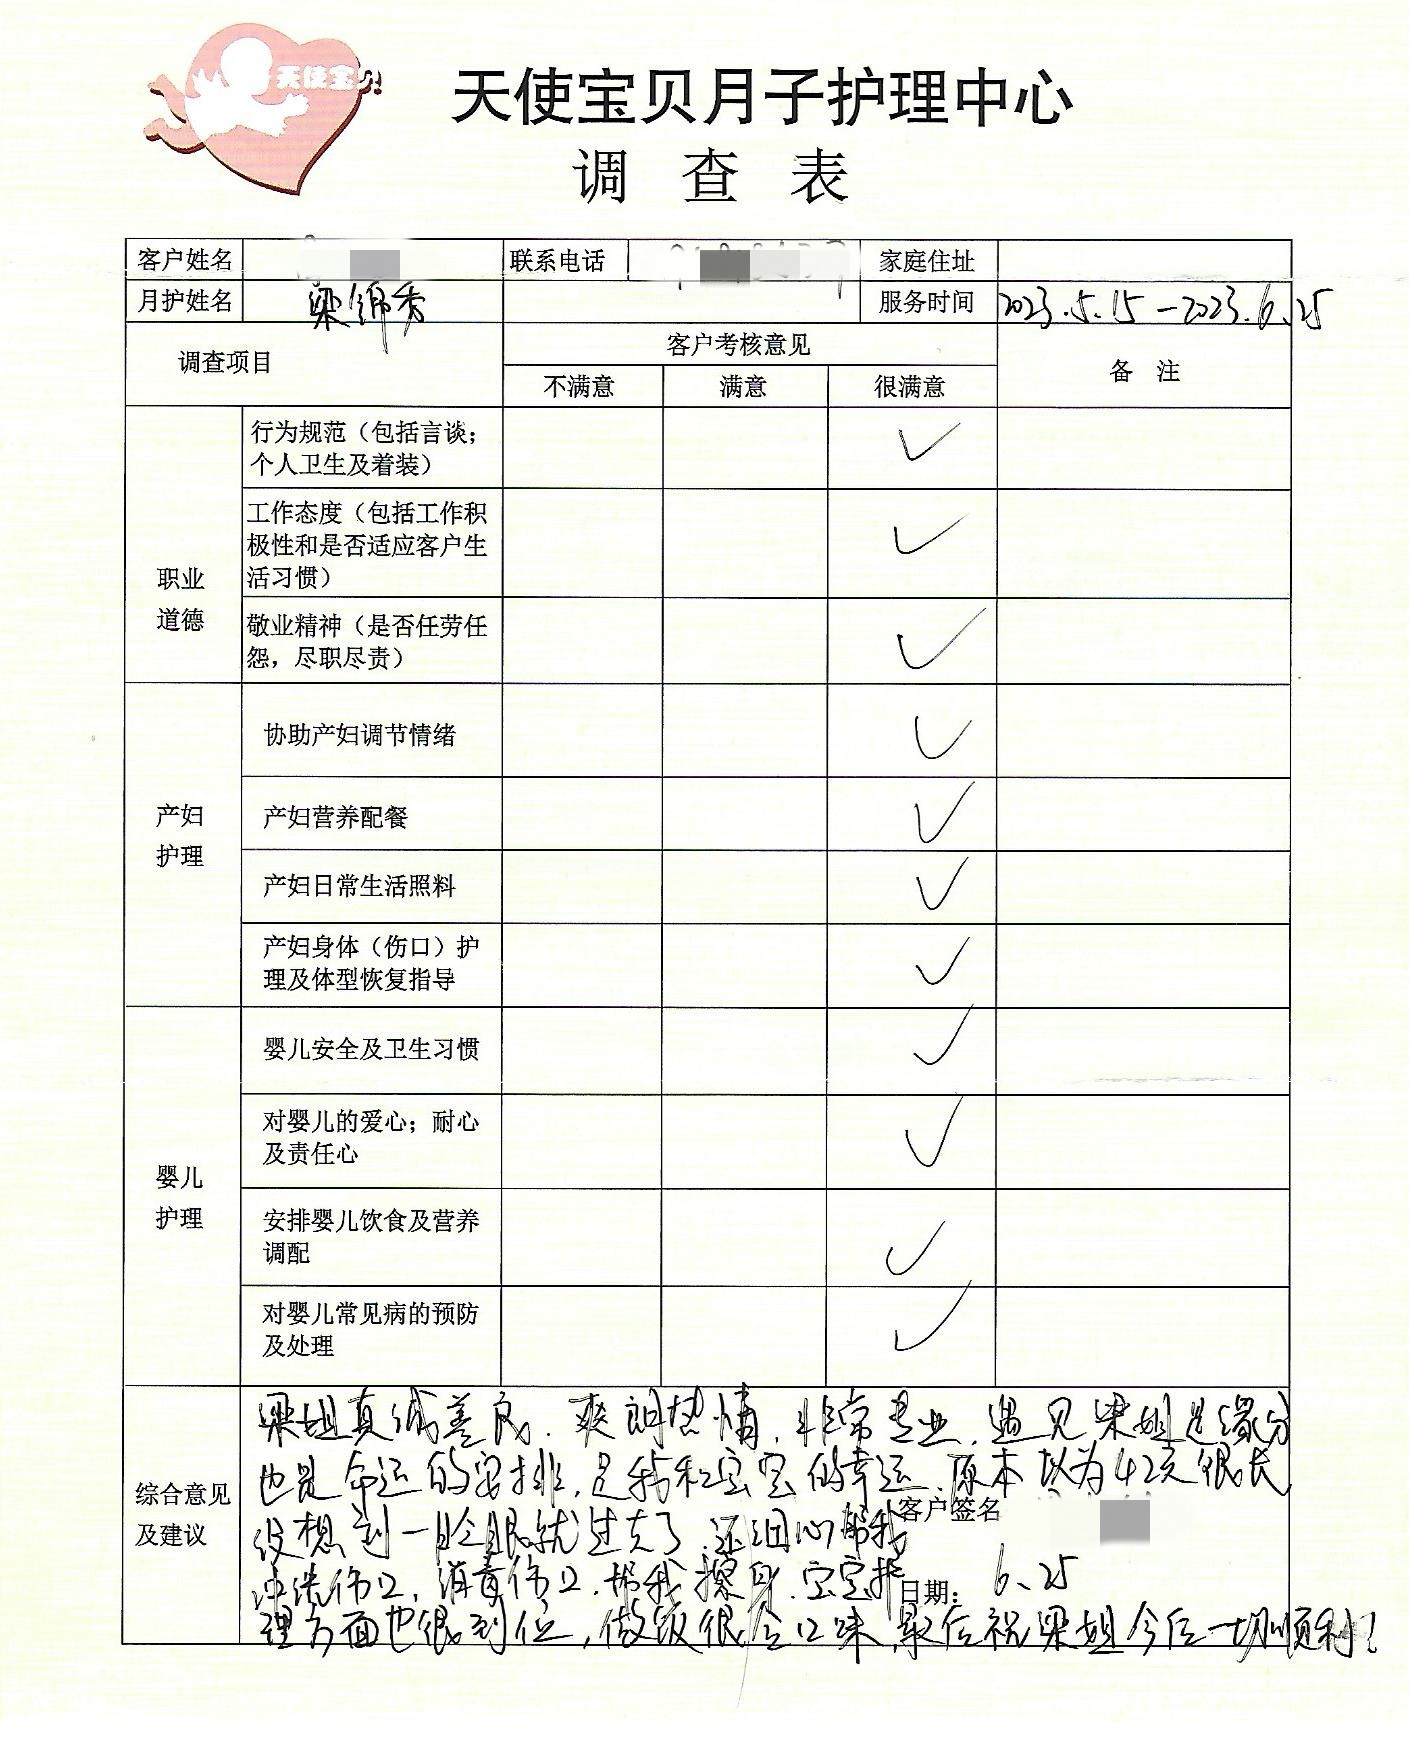 天使宝贝
天使宝贝月子护理中心
调 查 表
客户姓名 联系电话 家庭住址
月护姓名 梁绵秀 服务时间 2023.5.15-2023.6.25
调查项目 客户考核意见 备 注
不满意 满意 很满意
职业
道德
行为规范（包括言谈；
个人卫生及着装）
工作态度（包括工作积
极性和是否适应客户生
活习惯）
敬业精神（是否任劳任
怨，尽职尽责）
产妇
护理
协助产妇调节情绪
产妇营养配餐
产妇日常生活照料
产妇身体（伤口）护
理及体型恢复指导
婴儿
护理
婴儿安全及卫生习惯
对婴儿的爱心；耐心
及责任心
安排婴儿饮食及营养
调配
对婴儿常见病的预防
及处理
综合意见
及建议
梁姐真诚善良、爽朗热情，非常专业，遇见梁姐是缘分
也是命运的安排，是我和宝宝的幸运，原本以为42天很长
没想到一眨眼就过去了，还细心帮我
冲洗伤口，消毒伤口，帮我擦身，宝宝护
理方面也很到位，做饭很合口味，最后祝梁姐今后一切顺利！
客户签名
日期： 6.25